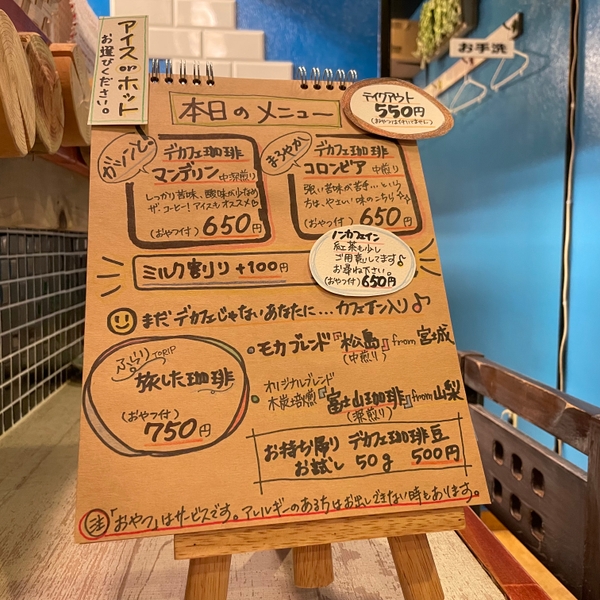 アイス or ホット
お選びください。
お手洗
本日のメニュー
テイクアウト
550円
(おやつは付いていません)
ガツンと
デカフェ珈琲
マンデリン 中深煎り
しっかり苦味、酸味が少なめ
ザ・コーヒー!アイスもオススメ
(おやつ付) 650円
まろやか
デカフェ珈琲
コロンビア 中煎り
強い苦味が苦手…という
方は、やさしい味のこちら
(おやつ付) 650円
ノンカフェイン
紅茶も少し
ご用意してます♪
お尋ね下さい。
(おやつ付) 650円
ミルク割り +100円
まだデカフェじゃないあなたに… カフェイン入り♪
ふらり TORIP
旅した珈琲
(おやつ付)
750円
・モカブレンド『松島』from 宮城
(中煎り)
オリジナルブレンド
・木炭焙煎『富士山珈琲』from 山梨
(深煎り)
お持ち帰り デカフェ珈琲豆
お試し 50g 500円
注「おやつ」はサービスです。アレルギーのある方はお出しできない時もあります。